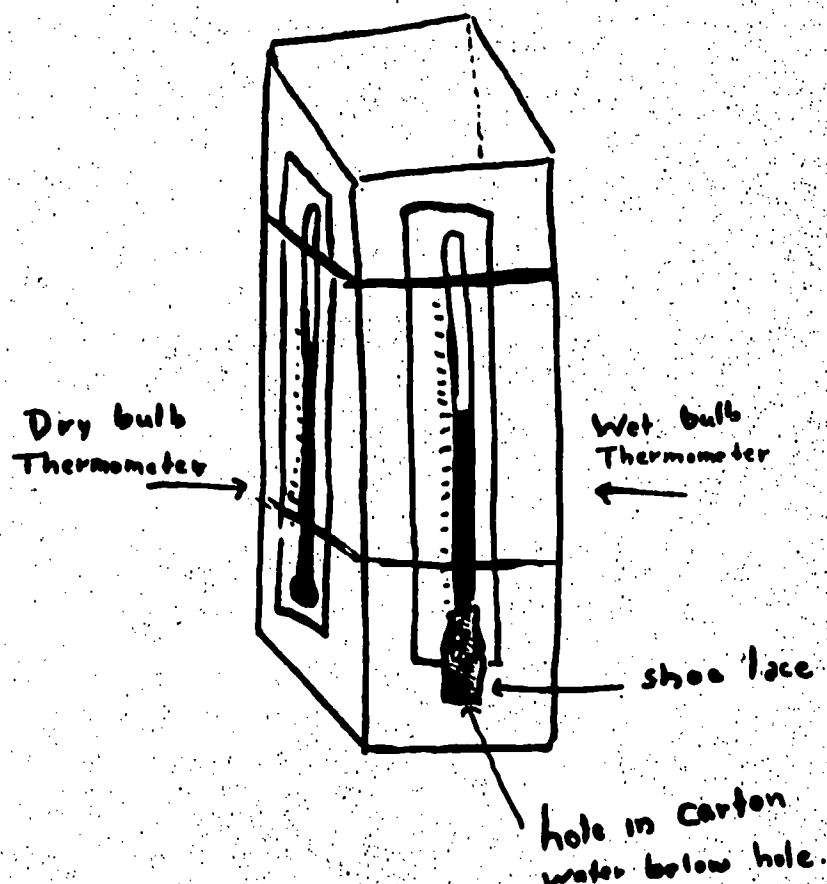 Dry bulb
Thermometer
Wet bulb
Thermometer
shoe lace
hole in carton
water below hole.